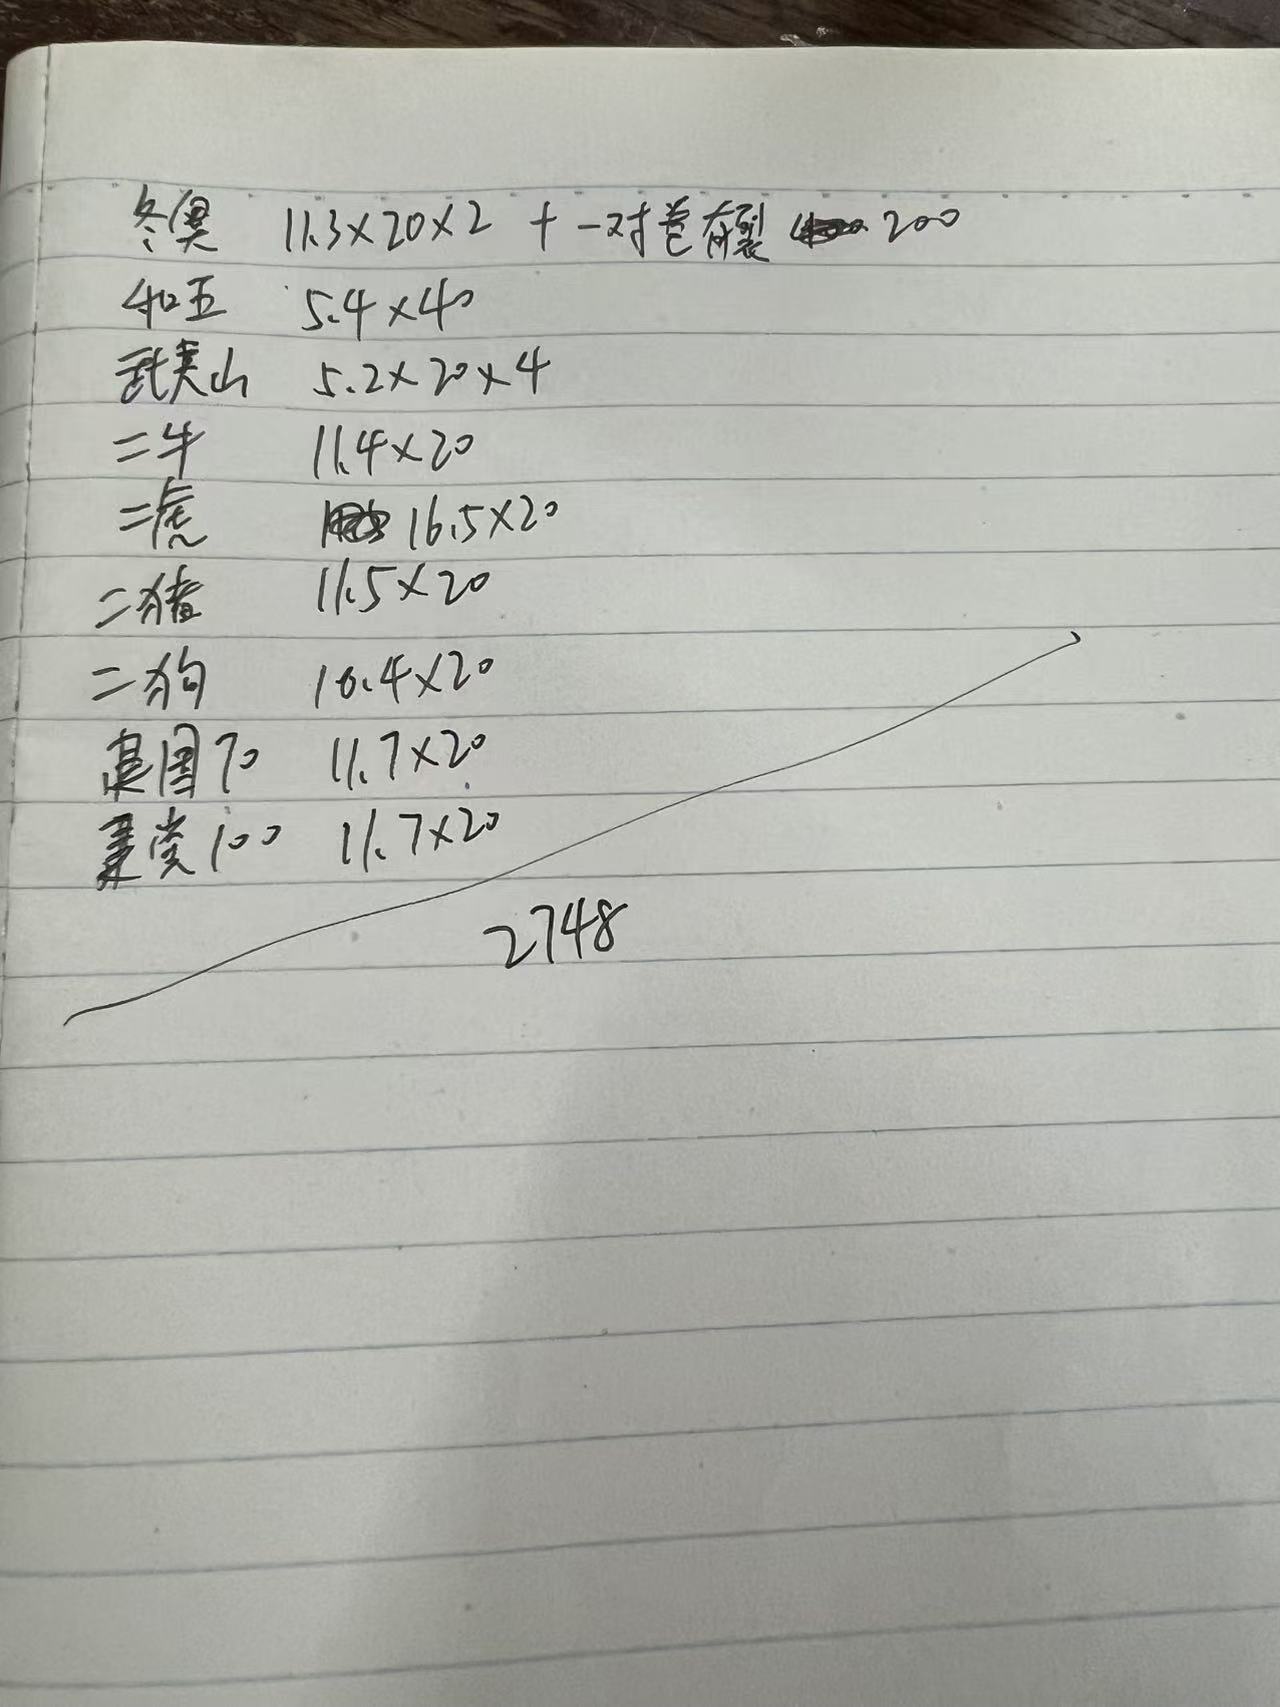 冬奥 11.3×20×2 + 一对苍存裂 200
和五 5.4×40
武夷山 5.2×20×4
二牛 11.4×20
二虎 16.5×20
二猪 11.5×20
二狗 10.4×20
建国70 11.7×20
建党100 11.7×20
2748